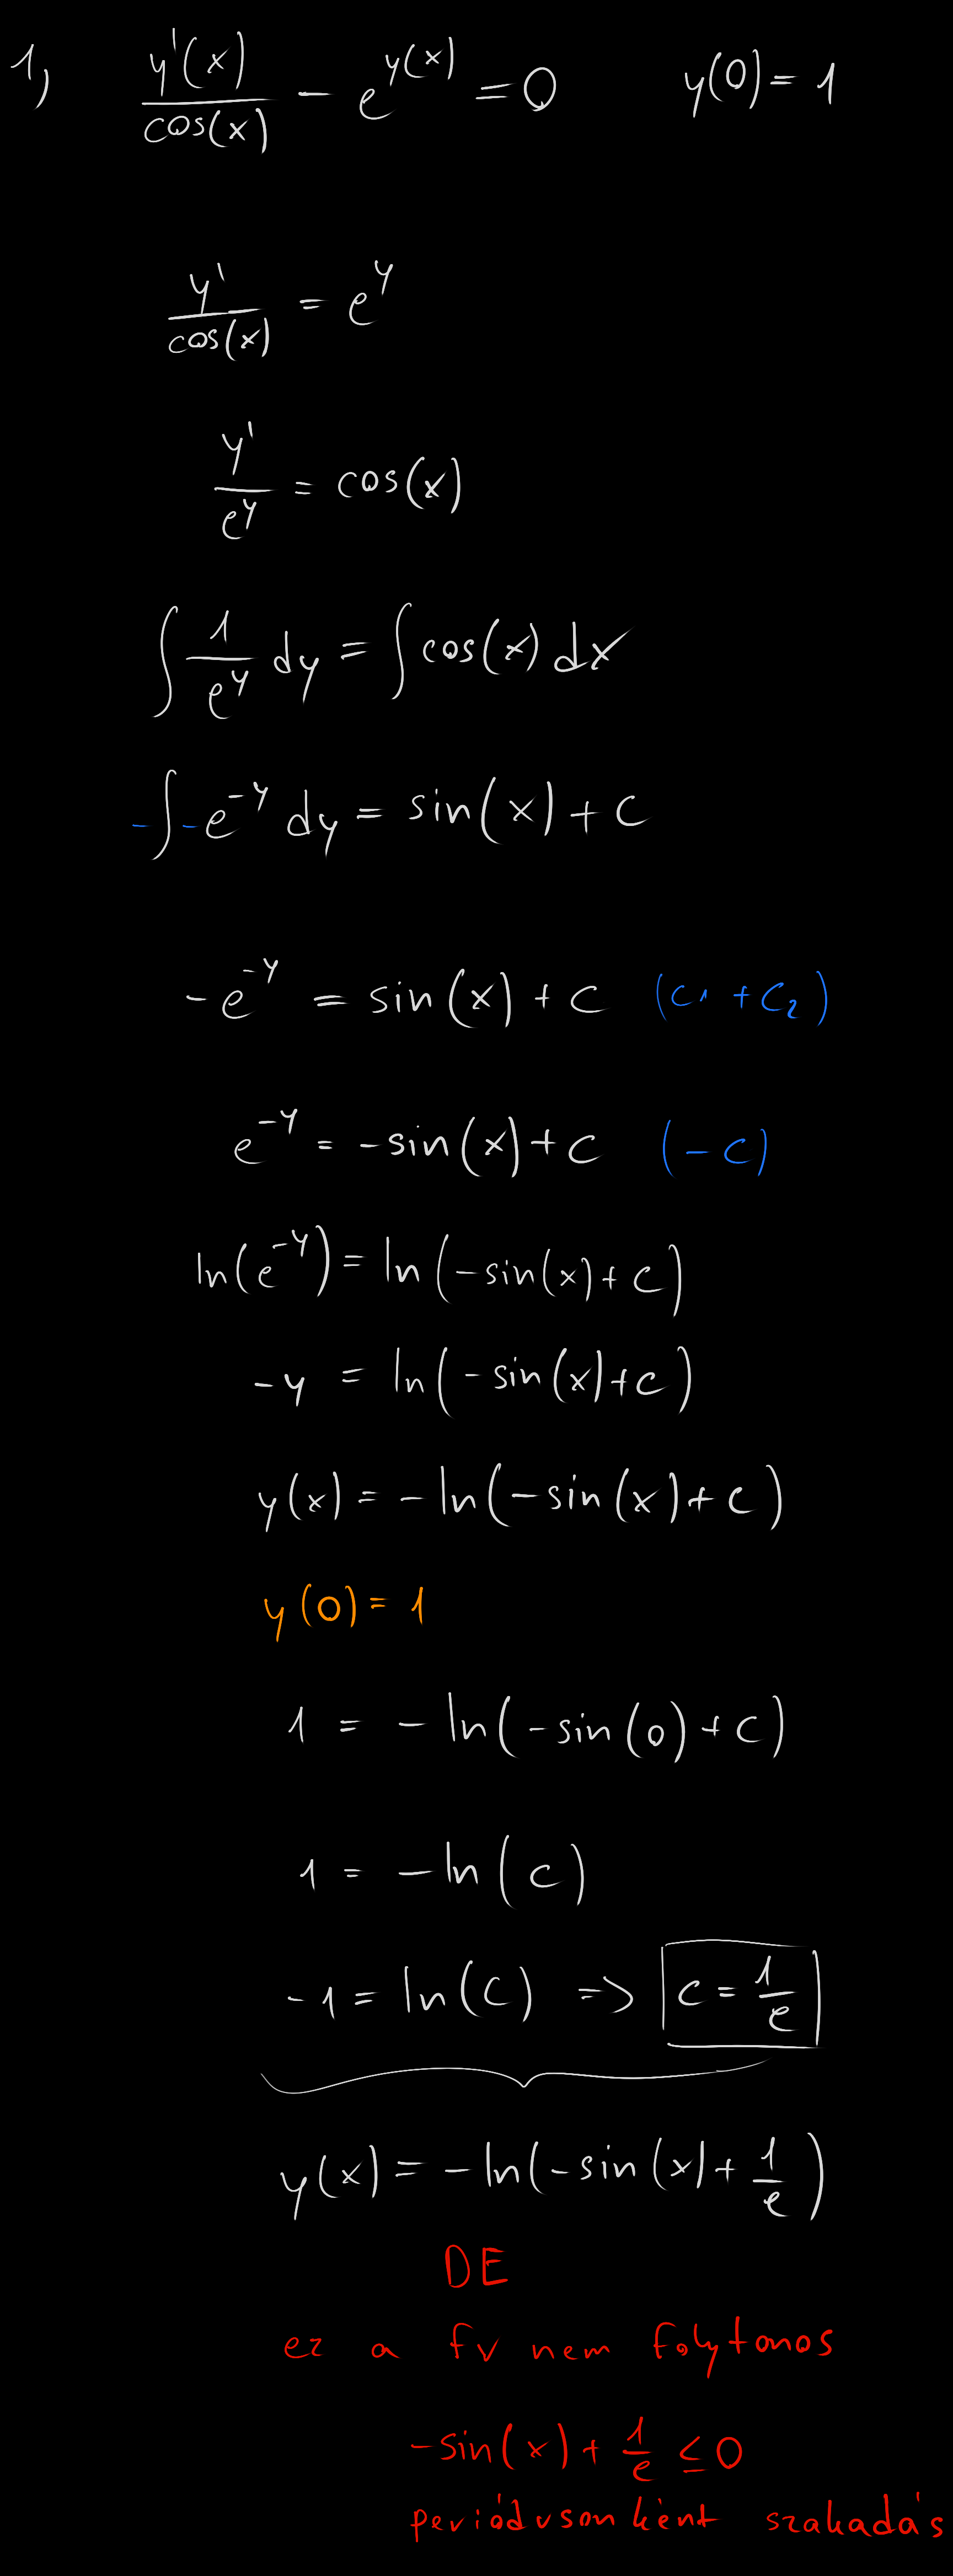 1, y'(x)/cos(x) - e^y(x) = 0 y(0) = 1
y'/cos(x) = e^y
y'/e^y = cos(x)
∫ 1/e^y dy = ∫ cos(x) dx
-∫ -e^-y dy = sin(x) + c
-e^-y = sin(x) + c (c1 + c2)
e^-y = -sin(x) + c (-c)
ln(e^-y) = ln(-sin(x) + c)
-y = ln(-sin(x) + c)
y(x) = -ln(-sin(x) + c)
y(0) = 1
1 = -ln(-sin(0) + c)
1 = -ln(c)
-1 = ln(c) => c = 1/e
y(x) = -ln(-sin(x) + 1/e)
DE
ez a fv nem folytonos
-sin(x) + 1/e ≤ 0
periódusonként szakadás